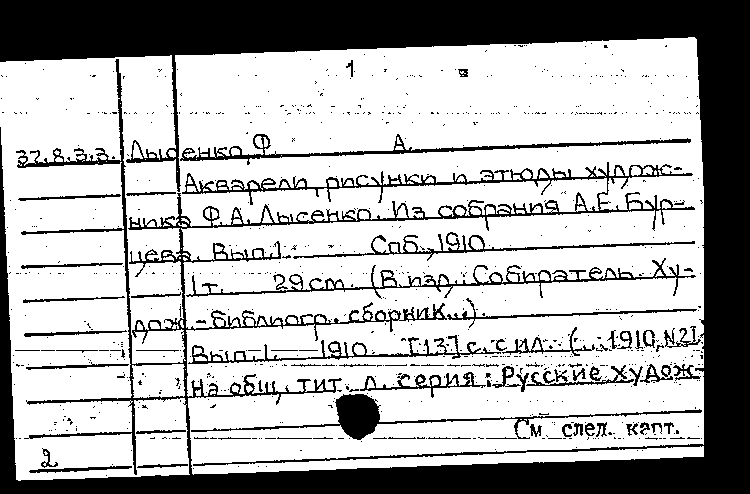 1
37.8.3.3. Лысенко, Ф. А.
Акварели, рисунки и этюды худож-
ника Ф. А. Лысенко. Из собрания А.Е. Бур-
цева. Вып.1. Спб., 1910.
1т. 29см. (В изд.: Собиратель. Ху-
дож.-библиогр. сборник...).
Вып.1. 1910. [13] с. с ил. (...1910, №2).
На общ. тит. л. серия: Русские худож-
См. след. карт.
2